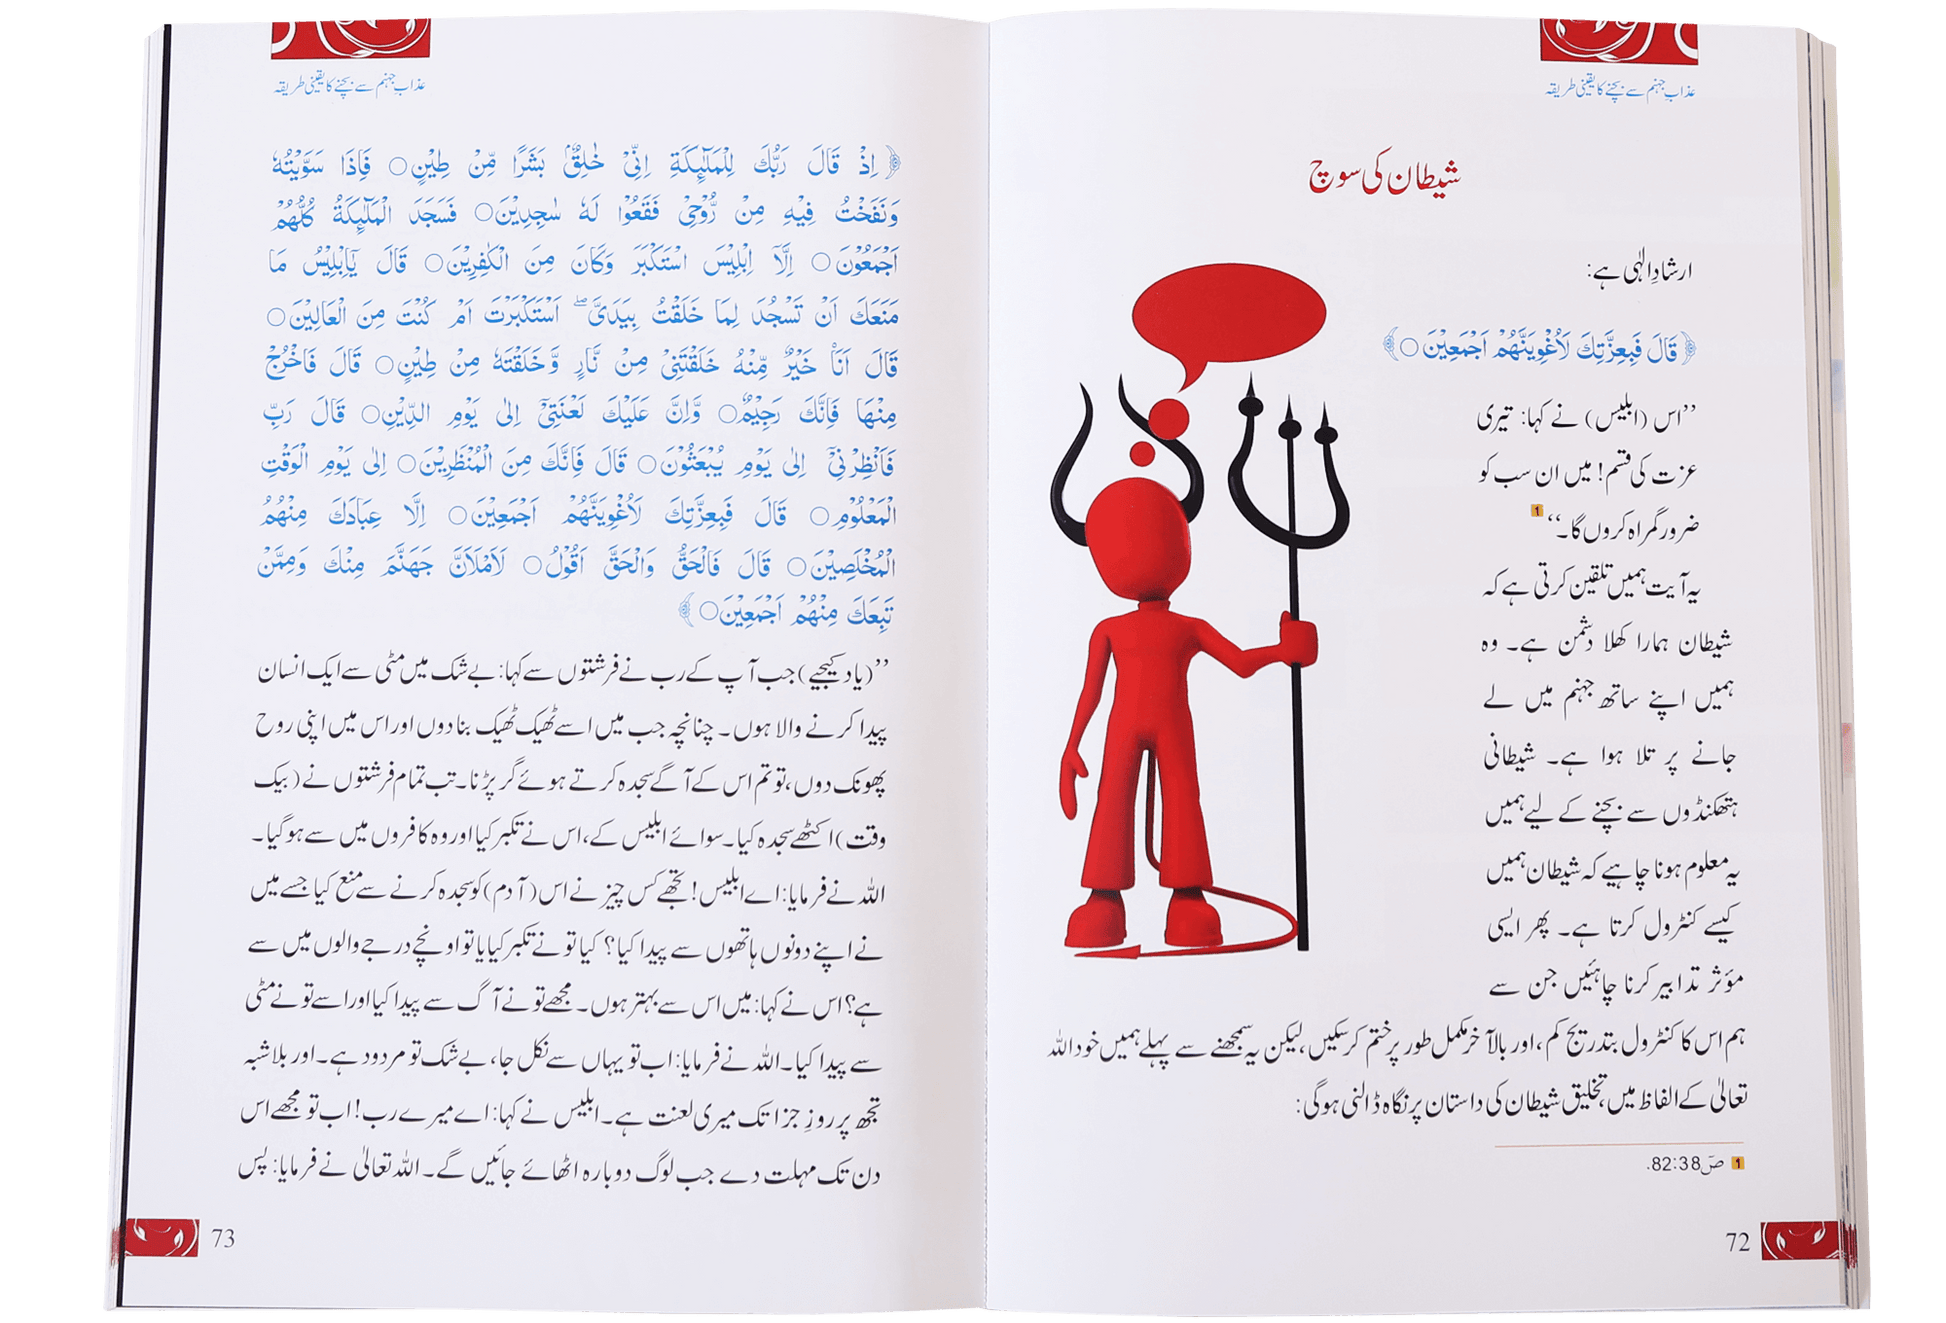 عذاب جہنم سے بچنے کا یقینی طریقہ
شیطان کی سوچ
ارشادِ الٰہی ہے:
﴿قَالَ فَبِعِزَّتِكَ لَاُغْوِيَنَّهُمْ اَجْمَعِيْنَ○﴾
’’اس (ابلیس) نے کہا: تیری
عزت کی قسم! میں ان سب کو
ضرور گمراہ کروں گا۔‘‘ 1
یہ آیت ہمیں تلقین کرتی ہے کہ
شیطان ہمارا کھلا دشمن ہے۔ وہ
ہمیں اپنے ساتھ جہنم میں لے
جانے پر تلا ہوا ہے۔ شیطانی
ہتھکنڈوں سے بچنے کے لیے ہمیں
یہ معلوم ہونا چاہیے کہ شیطان ہمیں
کیسے کنٹرول کرتا ہے۔ پھر ایسی
مؤثر تدابیر کرنا چاہئیں جن سے
ہم اس کا کنٹرول بتدریج کم، اور بالآخر مکمل طور پر ختم کرسکیں، لیکن یہ سمجھنے سے پہلے ہمیں خود اللہ
تعالیٰ کے الفاظ میں، تخلیق شیطان کی داستان پر نگاہ ڈالنی ہوگی:
1 صٓ 82:38.
72
عذاب جہنم سے بچنے کا یقینی طریقہ
﴿اِذْ قَالَ رَبُّكَ لِلْمَلٰٓئِكَةِ اِنِّيْ خٰلِقٌۢ بَشَرًا مِّنْ طِيْنٍ○ فَاِذَا سَوَّيْتُهٗ
وَنَفَخْتُ فِيْهِ مِنْ رُّوْحِيْ فَقَعُوْا لَهٗ سٰجِدِيْنَ○ فَسَجَدَ الْمَلٰٓئِكَةُ كُلُّهُمْ
اَجْمَعُوْنَ○ اِلَّآ اِبْلِيْسَ اسْتَكْبَرَ وَكَانَ مِنَ الْكٰفِرِيْنَ○ قَالَ يٰٓاِبْلِيْسُ مَا
مَنَعَكَ اَنْ تَسْجُدَ لِمَا خَلَقْتُ بِيَدَيَّ ۖ اَسْتَكْبَرْتَ اَمْ كُنْتَ مِنَ الْعَالِيْنَ○
قَالَ اَنَا۠ خَيْرٌ مِّنْهُ خَلَقْتَنِيْ مِنْ نَّارٍ وَّخَلَقْتَهٗ مِنْ طِيْنٍ○ قَالَ فَاخْرُجْ
مِنْهَا فَاِنَّكَ رَجِيْمٌ○ وَّاِنَّ عَلَيْكَ لَعْنَتِيْٓ اِلٰى يَوْمِ الدِّيْنِ○ قَالَ رَبِّ
فَاَنْظِرْنِيْٓ اِلٰى يَوْمِ يُبْعَثُوْنَ○ قَالَ فَاِنَّكَ مِنَ الْمُنْظَرِيْنَ○ اِلٰى يَوْمِ الْوَقْتِ
الْمَعْلُوْمِ○ قَالَ فَبِعِزَّتِكَ لَاُغْوِيَنَّهُمْ اَجْمَعِيْنَ○ اِلَّا عِبَادَكَ مِنْهُمُ
الْمُخْلَصِيْنَ○ قَالَ فَالْحَقُّ وَالْحَقَّ اَقُوْلُ○ لَاَمْلَاَنَّ جَهَنَّمَ مِنْكَ وَمِمَّنْ
تَبِعَكَ مِنْهُمْ اَجْمَعِيْنَ○﴾
’’(یاد کیجیے) جب آپ کے رب نے فرشتوں سے کہا: بے شک میں مٹی سے ایک انسان
پیدا کرنے والا ہوں۔ چنانچہ جب میں اسے ٹھیک ٹھیک بنا دوں اور اس میں اپنی روح
پھونک دوں، تو تم اس کے آگے سجدہ کرتے ہوئے گر پڑنا۔ تب تمام فرشتوں نے (بیک
وقت) اکٹھے سجدہ کیا۔ سوائے ابلیس کے، اس نے تکبر کیا اور وہ کافروں میں سے ہوگیا۔
اللہ نے فرمایا: اے ابلیس! تجھے کس چیز نے اس (آدم) کو سجدہ کرنے سے منع کیا جسے میں
نے اپنے دونوں ہاتھوں سے پیدا کیا؟ کیا تو نے تکبر کیا یا تو اونچے درجے والوں میں سے
ہے؟ اس نے کہا: میں اس سے بہتر ہوں۔ مجھے تو نے آگ سے پیدا کیا اور اسے تو نے مٹی
سے پیدا کیا۔ اللہ نے فرمایا: اب تو یہاں سے نکل جا، بے شک تو مردود ہے۔ اور بلاشبہ
تجھ پر روزِ جزا تک میری لعنت ہے۔ ابلیس نے کہا: اے میرے رب! اب تو مجھے اس
دن تک مہلت دے جب لوگ دوبارہ اٹھائے جائیں گے۔ اللہ تعالیٰ نے فرمایا: پس
73